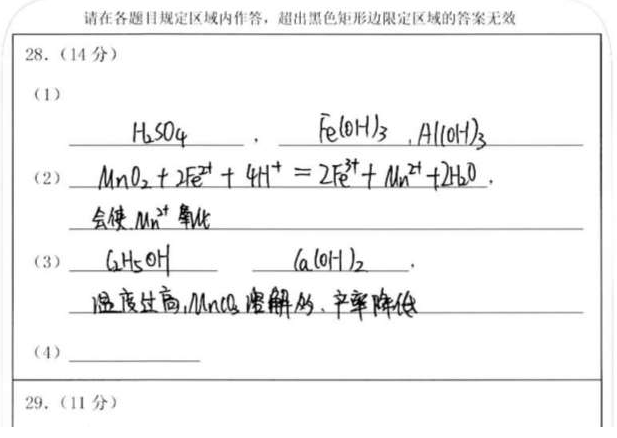 请在各题目规定区域内作答，超出黑色矩形边限定区域的答案无效
28.（14分）
（1）
H₂SO₄ . Fe(OH)₃ , Al(OH)₃
（2） MnO₂ + 2Fe²⁺ + 4H⁺ = 2Fe³⁺ + Mn²⁺ + 2H₂O .
会使 Mn²⁺ 氧化
（3） C₂H₅OH Ca(OH)₂ .
温度过高, MnCO₃ 溶解 、产率降低
（4）
29.（11分）